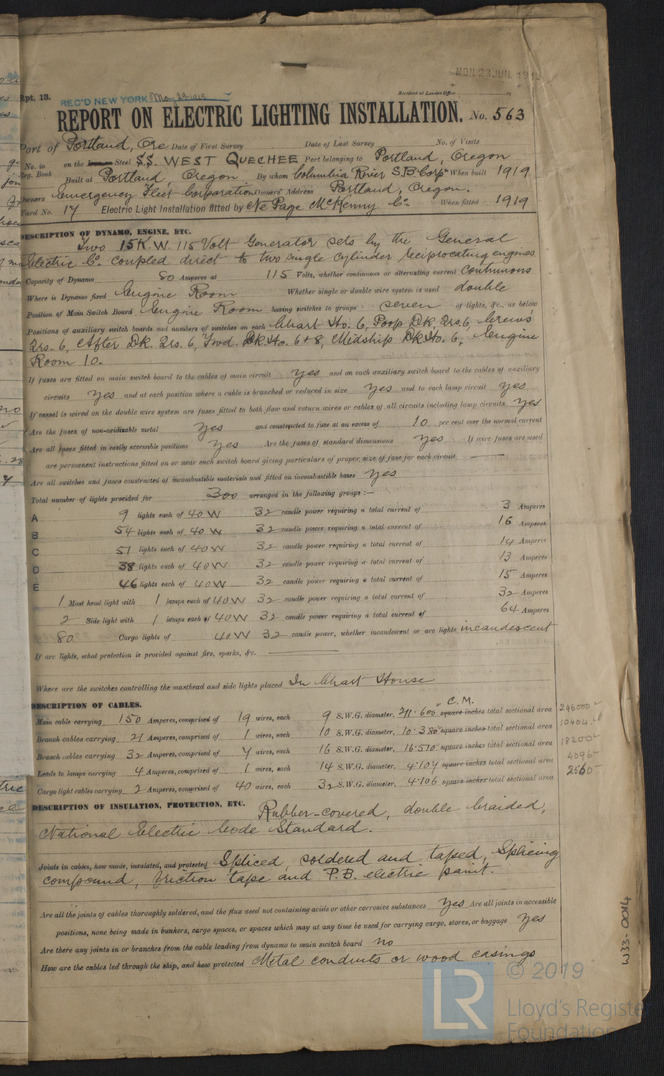 MON. 23 JUN. 191
Rpt. 13. REC'D NEW YORK Received at London Office
REPORT ON ELECTRIC LIGHTING INSTALLATION. No. 563
Port of Portland, Ore Date of First Survey Date of Last Survey No. of Visits
No. in Reg. Book on the Steel S.S. WEST QUECHEE Port belonging to Portland, Oregon
Built at Portland, Oregon By whom Columbia River S.B. Corp When built 1919
Owners Emergency Fleet Corporation Owners' Address Portland, Oregon.
Yard No. 17 Electric Light Installation fitted by Ne Page McKenny Co. When fitted 1919
DESCRIPTION OF DYNAMO, ENGINE, ETC.
Two 15 K.W. 115 Volt Generator sets by the General
Electric Co. coupled direct to two single cylinder reciprocating engines
Capacity of Dynamo 80 Amperes at 115 Volts, whether continuous or alternating current Continuous
Where is Dynamo fixed Engine Room Whether single or double wire system is used double
Position of Main Switch Board Engine Room having switches to groups seven of lights, &c., as below
Positions of auxiliary switch boards and numbers of switches on each Chart Ho. 6, Poop Dk. Qrs. 6, Crews
Qrs. 6, After Dk. Qrs. 6, Fwd. Dk Ho. 6 & 8, Midship Dk Ho. 6, Engine
Room 10.
If fuses are fitted on main switch board to the cables of main circuit yes and on each auxiliary switch board to the cables of auxiliary
circuits yes and at each position where a cable is branched or reduced in size yes and to each lamp circuit yes
If vessel is wired on the double wire system are fuses fitted to both flow and return wires or cables of all circuits including lamp circuits yes
Are the fuses of non-oxidizable metal yes and constructed to fuse at an excess of 10 per cent over the normal current
Are all fuses fitted in easily accessible positions yes Are the fuses of standard dimensions yes If wire fuses are used
are permanent instructions fitted on or near each switch board giving particulars of proper size of fuse for each circuit
Are all switches and fuses constructed of incombustible materials and fitted on incombustible bases yes
Total number of lights provided for 300 arranged in the following groups :—
A 9 lights each of 40 W 32 candle power requiring a total current of 3 Amperes
B 54 lights each of 40 W 32 candle power requiring a total current of 16 Amperes
C 51 lights each of 40 W 32 candle power requiring a total current of 14 Amperes
D 38 lights each of 40 W 32 candle power requiring a total current of 13 Amperes
E 46 lights each of 40 W 32 candle power requiring a total current of 15 Amperes
1 Mast head light with 1 lamps each of 40 W 32 candle power requiring a total current of 32 Amperes
2 Side light with 1 lamps each of 40 W 32 candle power requiring a total current of 64 Amperes
80 Cargo lights of 40 W 32 candle power, whether incandescent or arc lights incandescent
If arc lights, what protection is provided against fire, sparks, &c.
Where are the switches controlling the masthead and side lights placed In Chart House
DESCRIPTION OF CABLES. C.M.
Main cable carrying 150 Amperes, comprised of 19 wires, each 9 S.W.G. diameter, 211.600 square inches total sectional area
Branch cables carrying 21 Amperes, comprised of 1 wires, each 10 S.W.G. diameter, 10.380 square inches total sectional area
Branch cables carrying 32 Amperes, comprised of 7 wires, each 16 S.W.G. diameter, 16.510 square inches total sectional area
Leads to lamps carrying 4 Amperes, comprised of 1 wires, each 14 S.W.G. diameter, 4.107 square inches total sectional area
Cargo light cables carrying 2 Amperes, comprised of 40 wires, each 32 S.W.G. diameter, 4.106 square inches total sectional area
DESCRIPTION OF INSULATION, PROTECTION, ETC.
Rubber-covered, double braided,
National Electric Code Standard.
Joints in cables, how made, insulated, and protected Spliced, soldered and taped, Splicing
compound, friction tape and P.B. electric paint.
Are all the joints of cables thoroughly soldered, and the flux used not containing acids or other corrosive substances yes Are all joints in accessible
positions, none being made in bunkers, cargo spaces, or spaces which may at any time be used for carrying cargo, stores, or baggage yes
Are there any joints in or branches from the cable leading from dynamo to main switch board no
How are the cables led through the ship, and how protected Metal conduits or wood casings
W33-0014
© 2019
LR Lloyd's Registe
Foundation